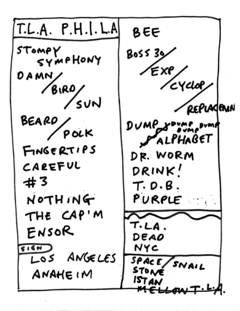 T.L.A. P.H.I.L.A
STOMPY
SYMPHONY
DAMN/
BIRD/
SUN
BEARD/
POLK
FINGERTIPS
CAREFUL
#3
NOTHING
THE CAP'M
ENSOR
SIGN
LOS ANGELES
ANAHEIM
BEE
BOSS 30/
EXP/
CYCLOP/
REPLACEMN
DUMP DUMP DUMP
DUMP
ALPHABET
DR. WORM
DRINK!
T.D.B.
PURPLE
T.L.A.
DEAD
NYC
SPACE/SNAIL
STONE
ISTAN
MELLOW T.L.A.